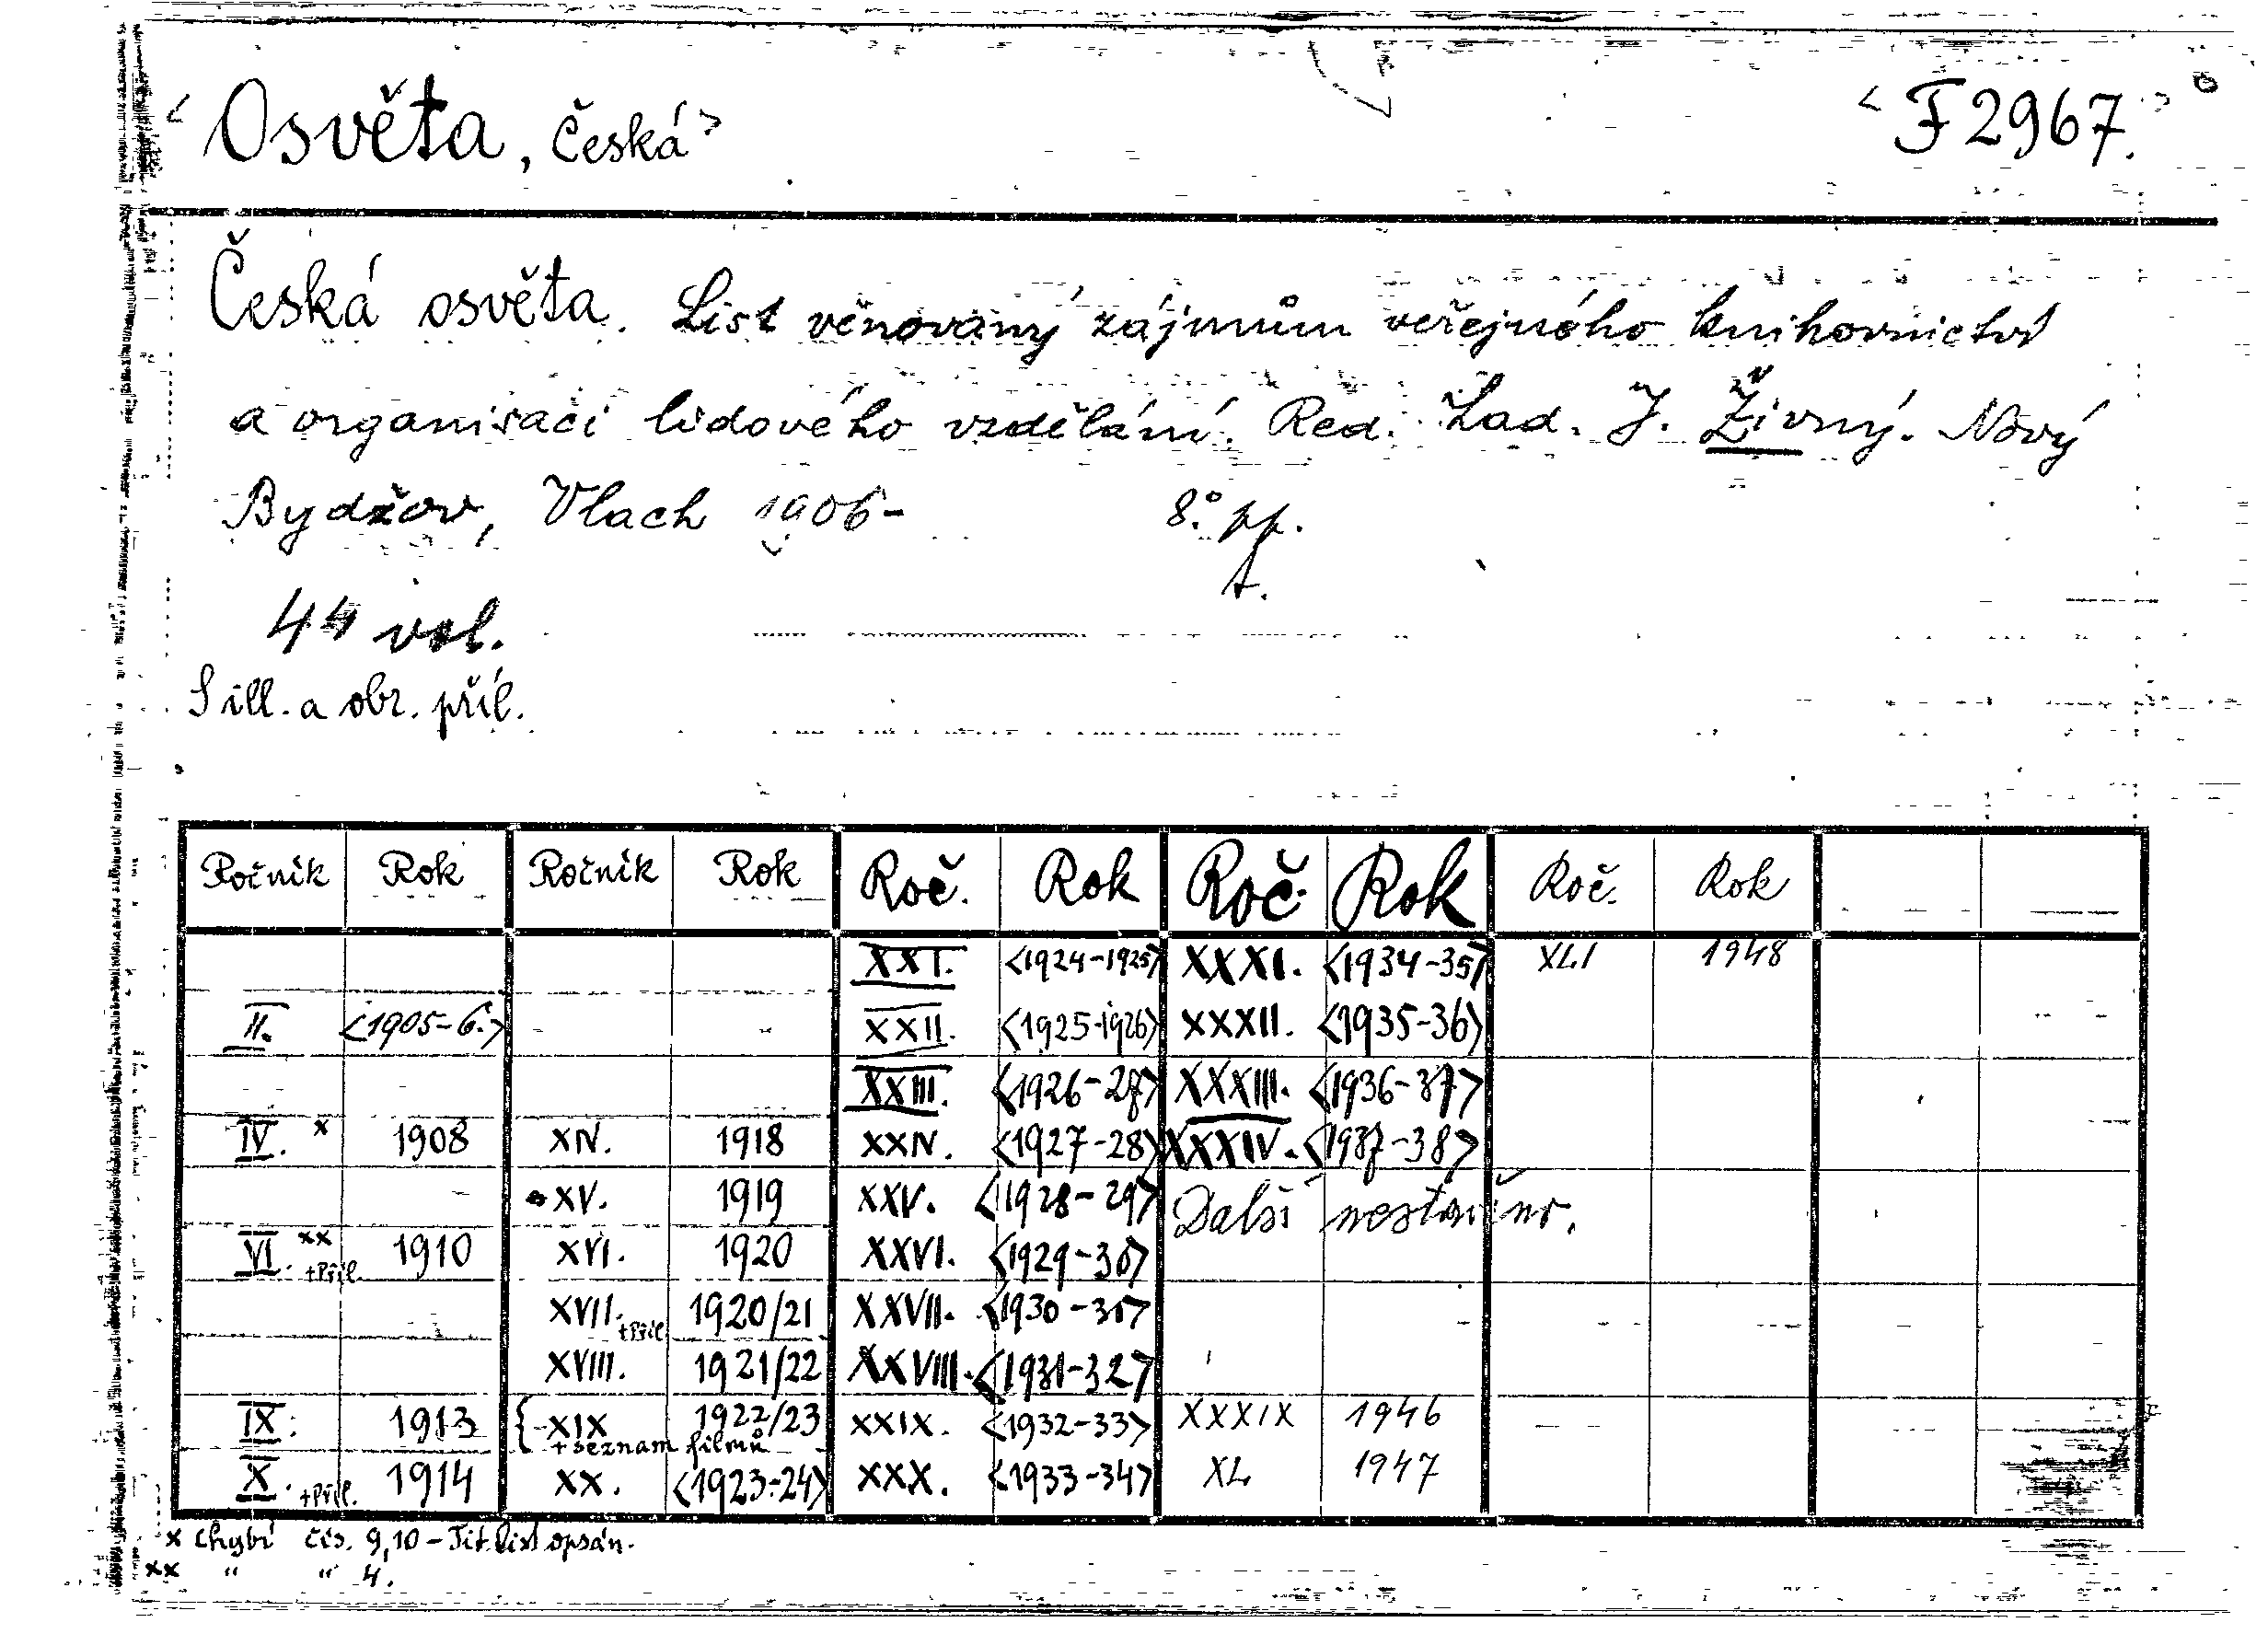 <Osvěta, Česká> <F 2967.>
Česká osvěta. List věnovaný zájmům veřejného knihovnictví
a organisaci lidového vzdělání. Red. Lad. J. Živný. Nový
Bydžov, Vlach 1906- 8° pp.
t.
44 vol.
S ill. a obr. příl.
Ročník Rok Ročník Rok Roč. Rok Roč. Rok Roč. Rok
XXI. <1924-1925> XXXI. <1934-35> XLI 1948
II. <1905-6.> XXII. <1925-1926> XXXII. <1935-36>
XXIII. <1926-27> XXXIII. <1936-37>
IV. x 1908 XIV. 1918 XXIV. <1927-28> XXXIV. <1937-38>
XV. 1919 XXV. <1928-29> Další nestaženo.
VI. xx +Příl. 1910 XVI. 1920 XXVI. <1929-30>
XVII. +Příl. 1920/21 XXVII. <1930-31>
XVIII. 1921/22 XXVIII. <1931-32>
IX. 1913 { XIX 1922/23 XXIX. <1932-33> XXXIX 1946
+ seznam filmů
X. +Příl. 1914 XX. <1923-24> XXX. <1933-34> XL 1947
x chybí čís. 9,10 - Tit. list opsán.
xx " " 4.